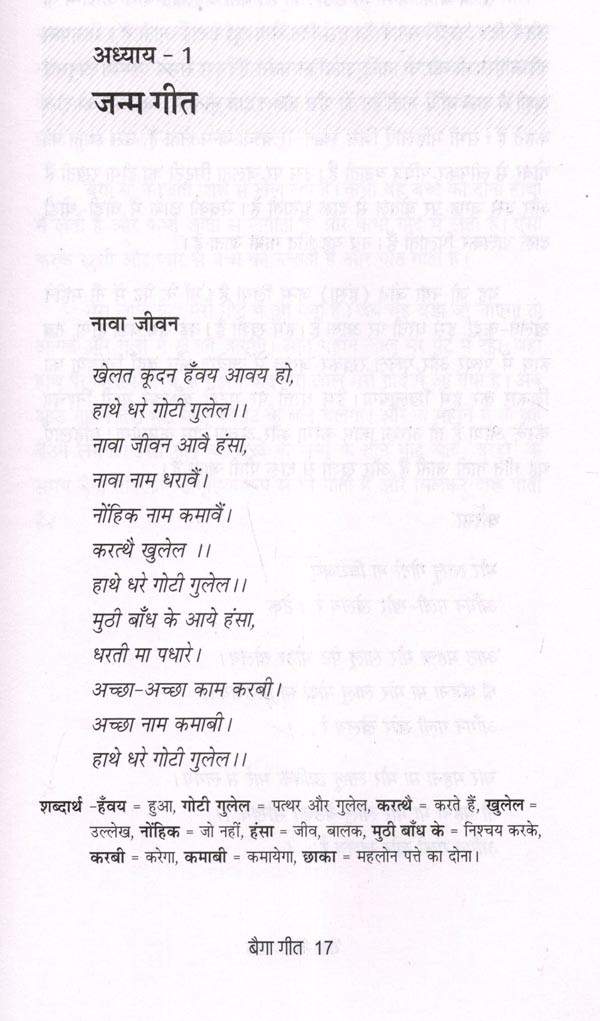 अध्याय - 1
जन्म गीत
नावा जीवन
खेलत कूदन हँवय आवय हो,
हाथे धरे गोटी गुलेल।।
नावा जीवन आवै हंसा,
नावा नाम धरावैं।
नोंहिक नाम कमावैं।
करत्थै खुलेल ।।
हाथे धरे गोटी गुलेल।।
मुठी बाँध के आये हंसा,
धरती मा पधारे।
अच्छा-अच्छा काम करबी।
अच्छा नाम कमाबी।
हाथे धरे गोटी गुलेल।।
शब्दार्थ -हँवय = हुआ, गोटी गुलेल = पत्थर और गुलेल, करत्थै = करते हैं, खुलेल =
उल्लेख, नोंहिक = जो नहीं, हंसा = जीव, बालक, मुठी बाँध के = निश्चय करके,
करबी = करेगा, कमाबी = कमायेगा, छाका = महलोन पत्ते का दोना।
बैगा गीत 17